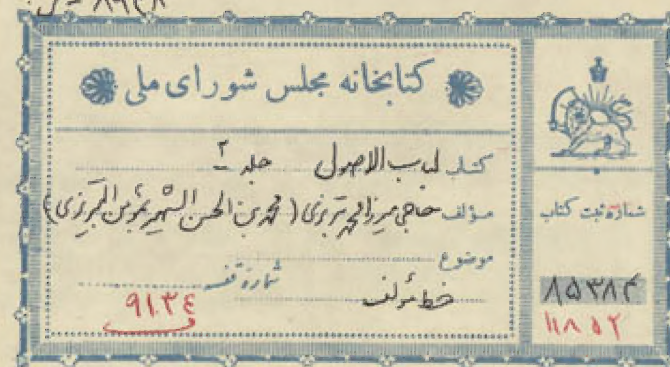 کتابخانه مجلس شورای ملی
کتاب لباب الاصول جلد ۲
مؤلف حاجی میرزا محمد تبریزی (محمد بن الحسن الشهیر
موضوع
خط مؤلف
شماره قفسه
۹۱۳۴
شماره ثبت کتاب
۸۵۳۸۴
۱۱۸۵۲